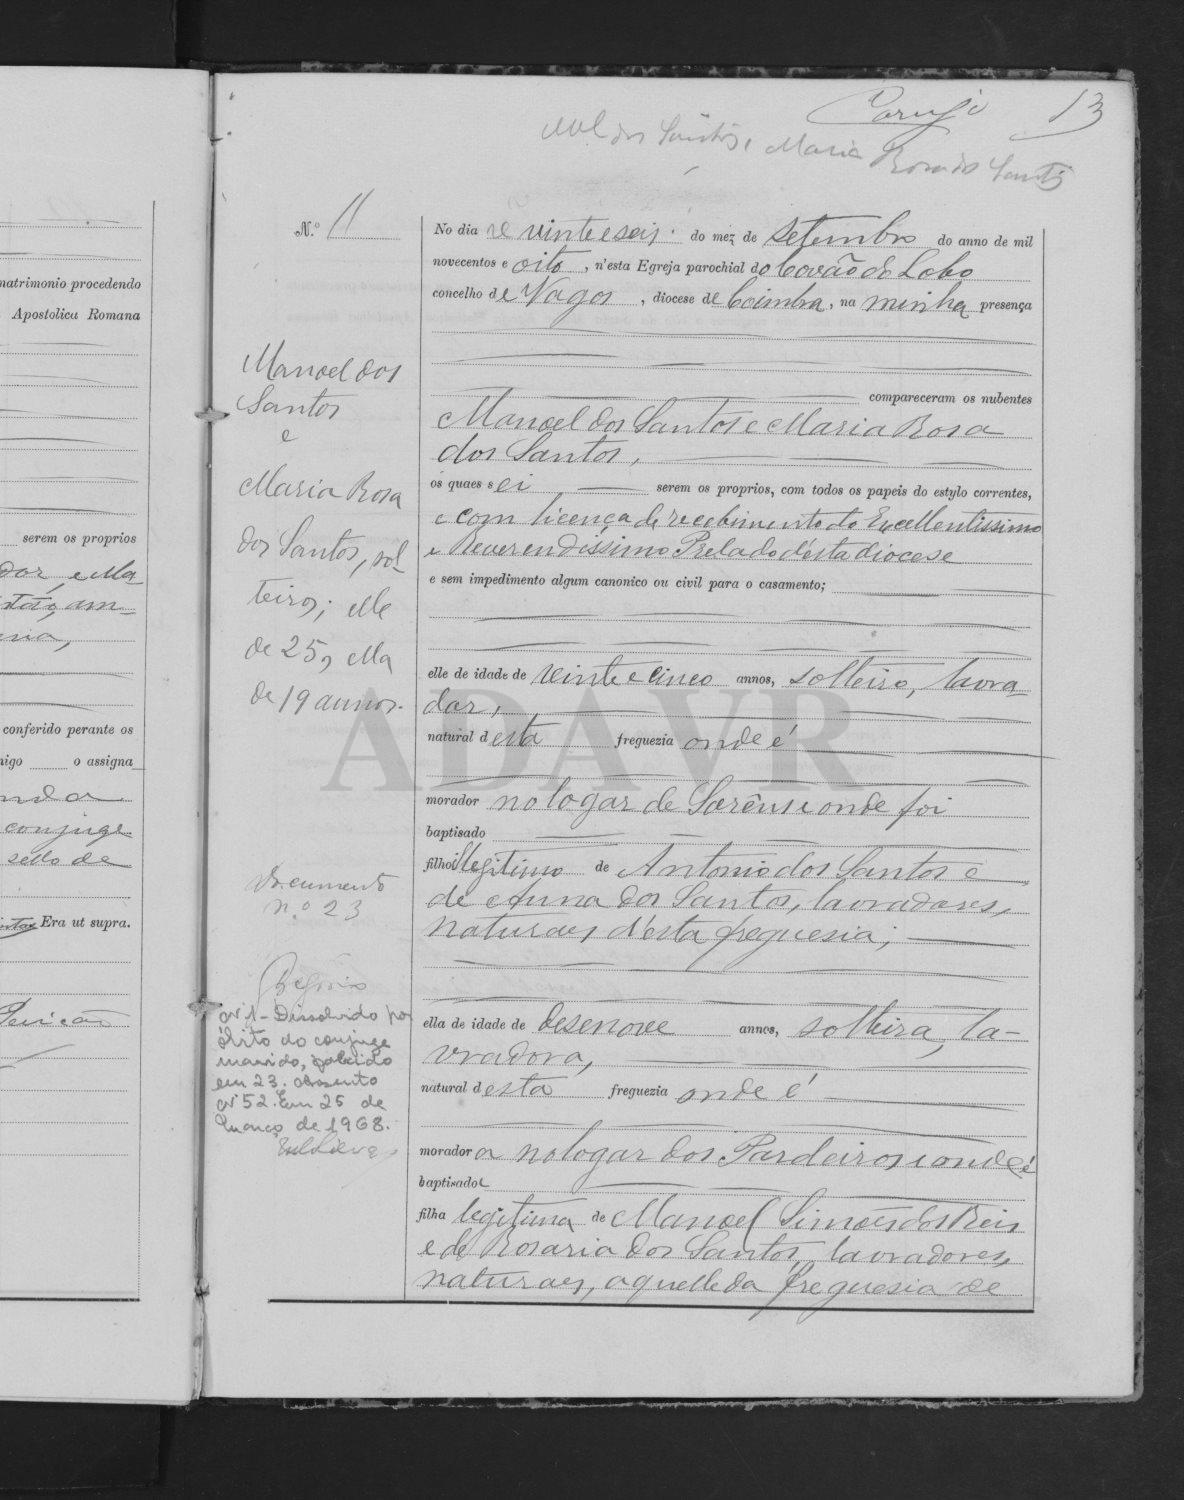 matrimonio procedendo
Apostolica Romana
serem os proprios
conferido perante os
o assigna
conjuge
sello de
Era ut supra.
13
Mel dos Santos, Maria
Rosa dos Santos
N.º 11
Manoel dos
Santos
e
Maria Rosa
dos Santos, sol-
teiros; elle
de 25, ella
de 19 annos.
Documento
n.º 23
Nº 1 - Dissolvido por
óbito do conjuge
marido, falecido
em 23. Assento
nº 52. Em 25 de
Março de 1968.
No dia vinte e seis do mez de Setembro do anno de mil
novecentos e oito, n'esta Egreja parochial do Covão do Lobo
concelho de Vagos, diocese de Coimbra, na minha presença
compareceram os nubentes
Manoel dos Santos e Maria Rosa
dos Santos,
os quaes sei serem os proprios, com todos os papeis do estylo correntes,
e com licença de recebimento do Excellentissimo
e Reverendissimo Prelado d'esta diocese
e sem impedimento algum canonico ou civil para o casamento;
elle de idade de vinte e cinco annos, solteiro, lavra-
dor,
natural d esta freguezia onde é
morador no logar de onde foi
baptisado
filho illegitimo de Antonio dos Santos e
de Anna dos Santos, lavradores,
naturaes d'esta freguesia;
ella de idade de desenove annos, solteira, la-
vradora,
natural d esta freguezia onde é
moradora no logar dos Pardeiros e onde é
baptisada
filha legitima de Manoel Simões dos Reis
e de Rosaria dos Santos, lavradores,
naturaes, aquelle da freguesia de
ADAVR